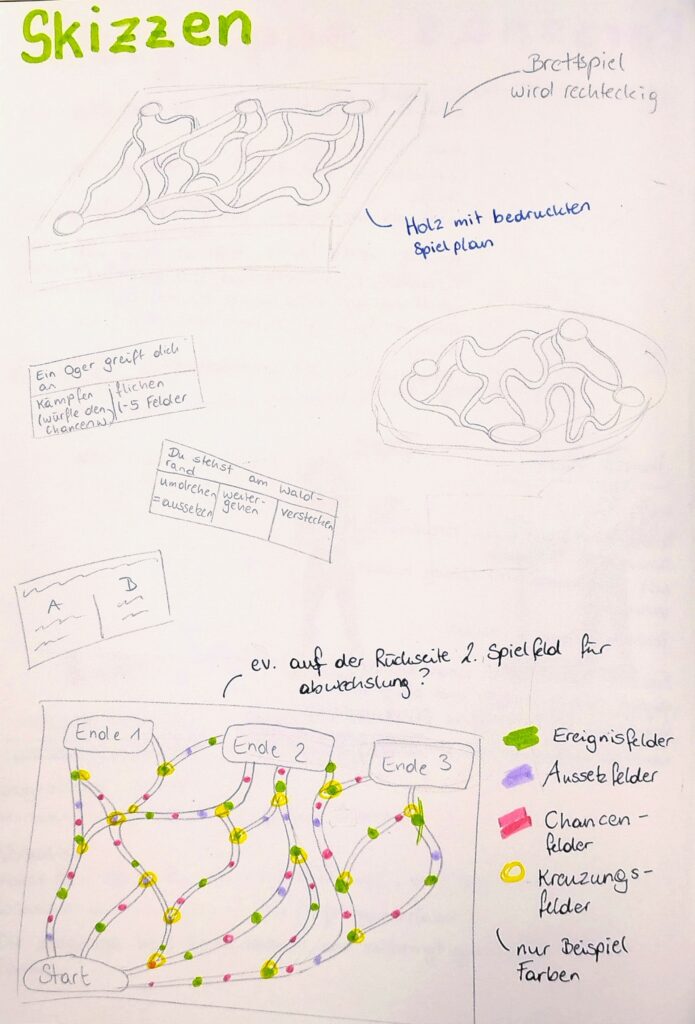 Skizzen
Brettspiel
wird rechteckig
Holz mit bedruckten
Spielplan
Ein Oger greift dich
an
Kämpfen
(würfle den
Chancenw.)
flichen
(-5 Felder
Du stehst am Wald-
rand
umdrehen
=aussetzen
weiter-
gehen
verstecken
A
B
ev. auf der Rückseite 2. Spielfeld für
abwechslung?
Ende 1
Ende 2
Ende 3
Start
Ereignisfelder
Aussetzfelder
Chancen-
felder
Kreuzungs-
felder
nur Beispiel
Farben